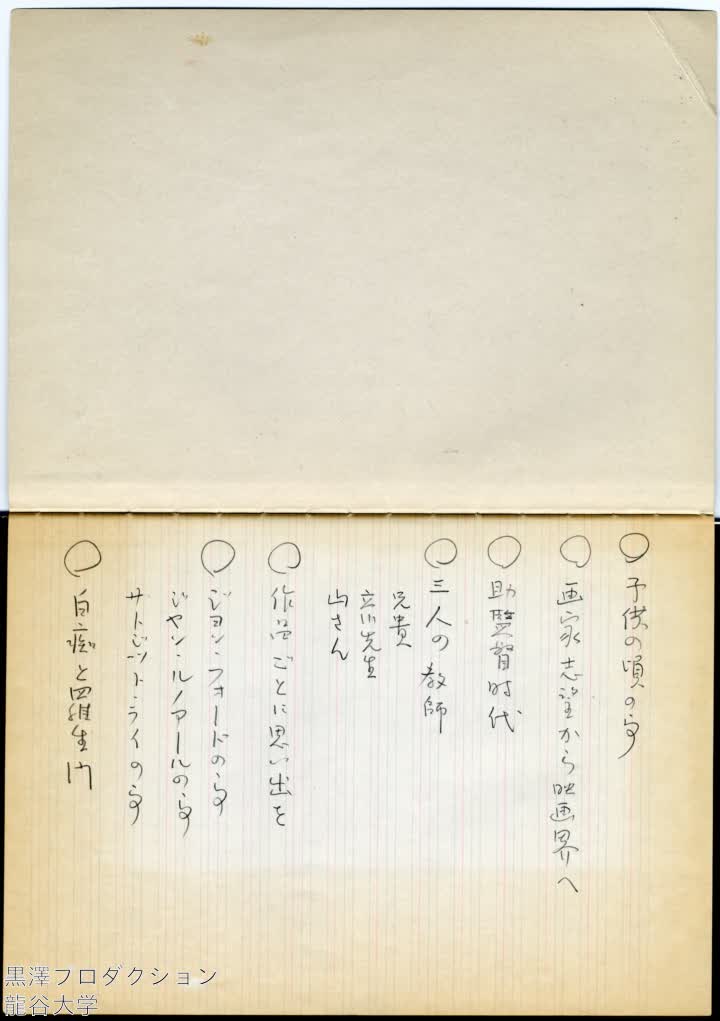 ○ 子供の頃の事
○ 画家志望から映画界へ
○ 助監督時代
○ 三人の教師
兄貴
立川先生
山さん
○ 作品ごとに思い出を
○ ジョン・フォードの事
ジャン・ルノアールの事
サトジット・ライの事
○ 白痴と羅生門
黒澤プロダクション
龍谷大学